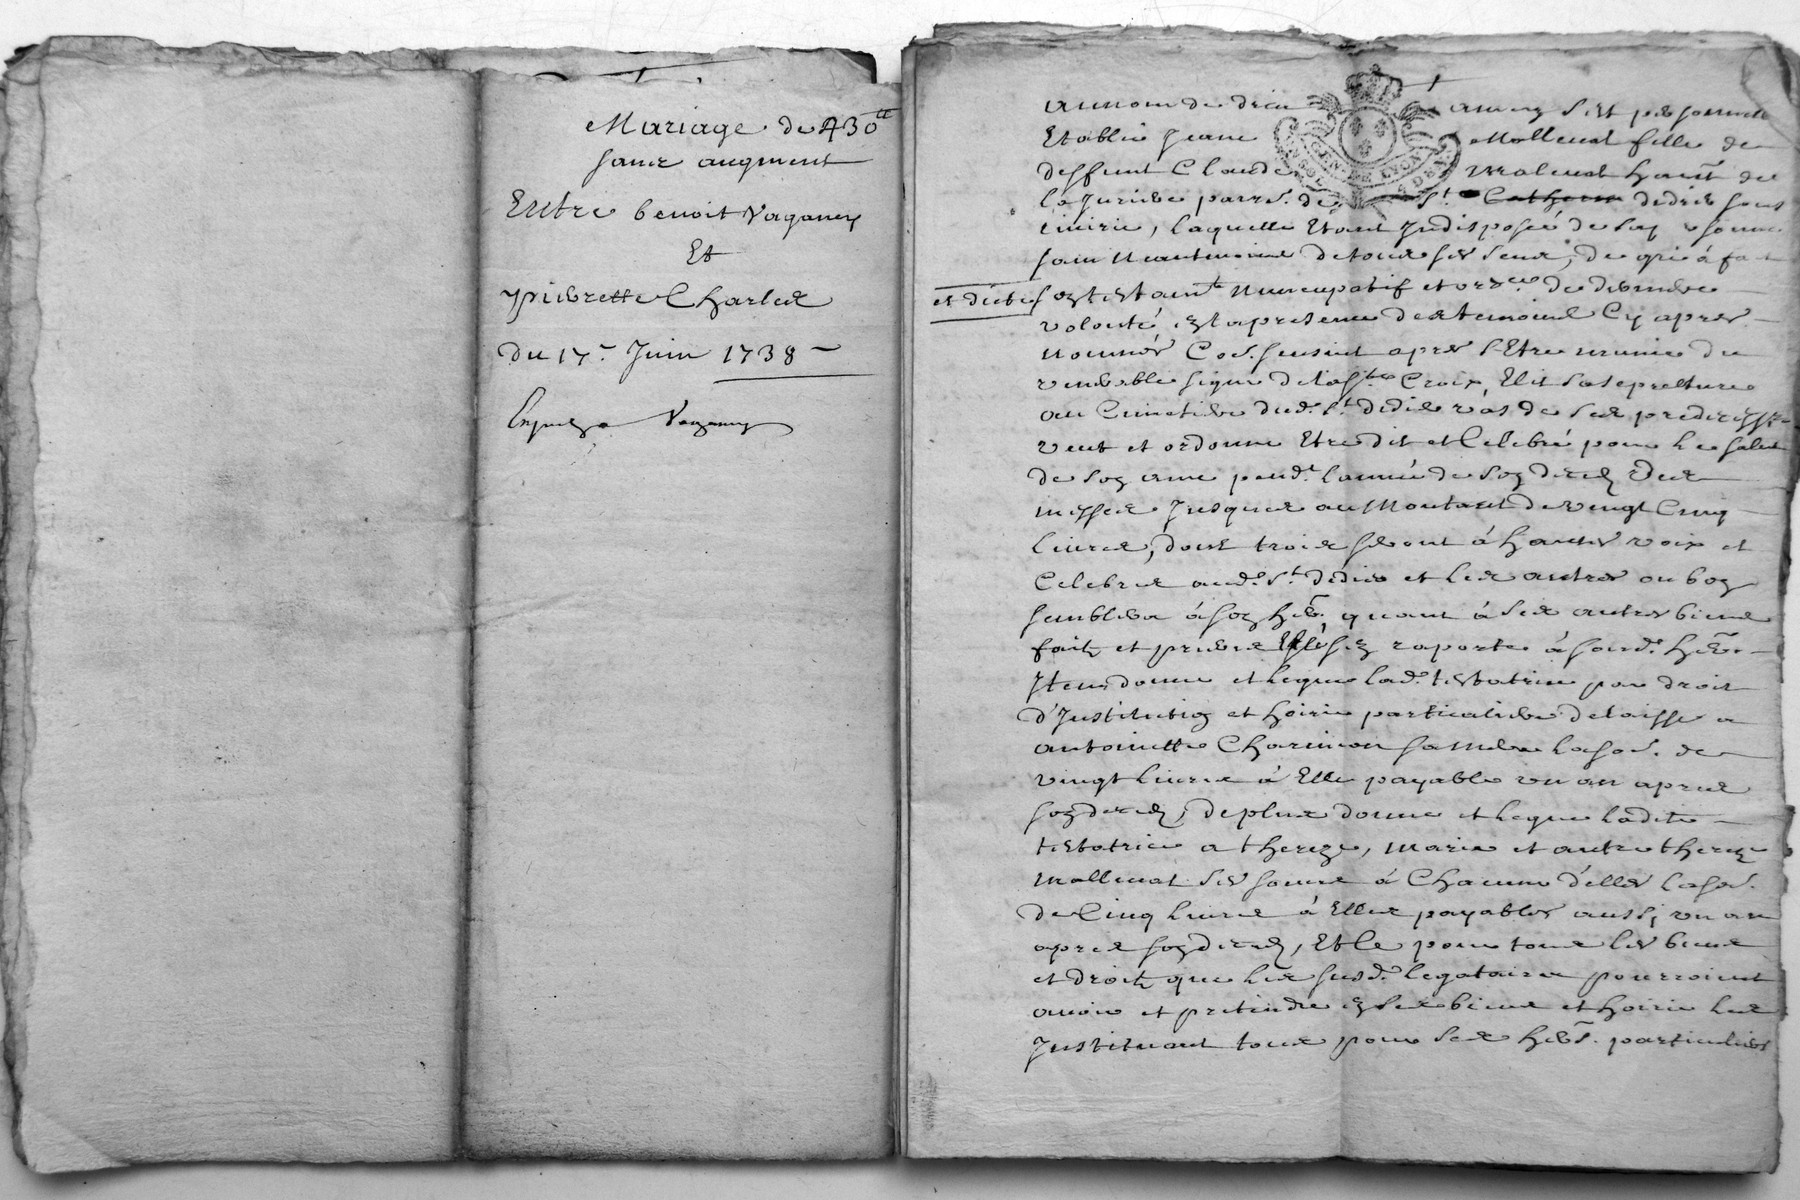 Mariage de 430ᵗᵗ
sans augment
Entre benoit Vaganay
Et
pierrette Charles
du 17ᵉ Juin 1738
Vaganay
au nom de dieu amen s'est personnell
Etablie Jeane Mollenat fille de
deffunt Claude molenat hant de
la Juriere parrs. de St. Catherin didier sous
riuirie, laquelle Etant Indisposée de son
sain neantmoins de tous ses sens, de gré à fait
et dicté son testamt nuncupatif et orz.ce de derniere
volonté en la presence des temoins Cy apres
nommés Co. sensuit apres s'Etre munie du
venerable signe de la Ste Croix, Elit sa sepulture
au Cimetiere dud. St didier vas de ses predecess.
veut et ordonne Etre dit et Celebré pour le salut
de son ame pendt. l'année de son deced des
messes Jusques au Montant de vingt Cinq
liures, dont trois seront à hautes voix et
Celebres aud. St. didier et les autres ou bon
semblera à son her. quant à ses autres biens
faits et prieres Elle s'en raporte à sond. her.
Item donne et legue lad. testatrice par droit
d'Institution et hoirie particuliere delaisse a
antoinette Charmion sa mere la so. de
vingt liures à Elle payable un an apres
son deced, de plus donne et legue ladite
testatrice a thereze, marie et autre thereze
mollenat ses soeurs à Chacune d'elles la so.
de Cinq liures à Elles payables aussi un an
apres son deced, Et Ce pour tous les biens
et droits que les susd. legataires pourroient
auoir et pretendre en ses biens et hoirie les
Instituant tous pour ses hers. particuliers